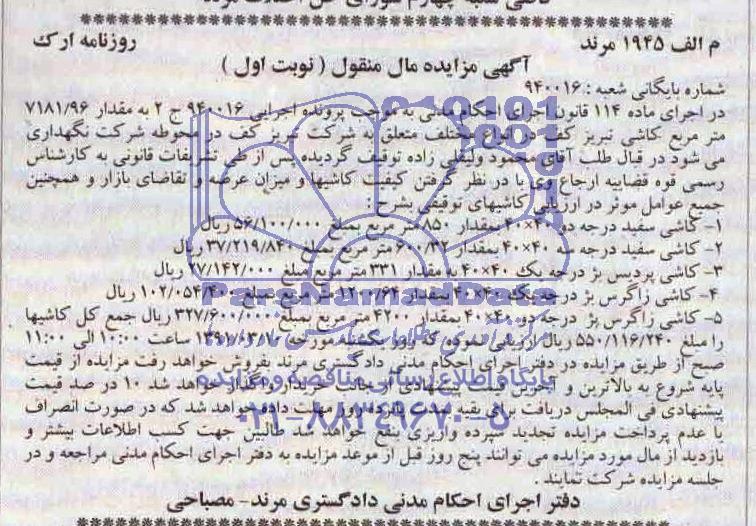 م الف ۱۹۴۵ مرند
روزنامه ارک
آگهی مزایده مال منقول (نوبت اول)
شماره بایگانی شعبه : ۹۴۰۰۱۶
در اجرای ماده ۱۱۴ قانون اجرای احکام مدنی به موجب پرونده اجرایی ۹۴۰۰۱۶ ج ۲ به مقدار ۷۱۸۱/۹۶
متر مربع کاشی تبریز کف در انواع مختلف متعلق به شرکت تبریز کف در محوطه شرکت نگهداری
می شود در قبال طلب آقای محمود ولیقلی زاده توقیف گردیده پس از طی تشریفات قانونی به کارشناس
رسمی قوه قضاییه ارجاع وی با در نظر گرفتن کیفیت کاشیها و میزان عرضه و تقاضای بازار و همچنین
جمیع عوامل موثر در ارزیابی کاشیهای توقیفی بشرح :
۱- کاشی سفید درجه دو ۴۰×۴۰ بمقدار ۸۵۰ متر مربع بمبلغ ریال
۲- کاشی سفید درجه سه ۴۰×۴۰ بمقدار ۶۰۰/۳۲ متر مربع بمبلغ ۳۷/۲۱۹/۸۴۰ ریال
۳- کاشی پردیس بژ درجه یک ۴۰×۴۰ به مقدار ۳۳۱ متر مربع مبلغ ریال
۴- کاشی زاگرس بژ درجه یک ۴۰×۴۰ بمقدار متر مربع مبلغ ریال
۵- کاشی زاگرس بژ درجه دو ۴۰×۴۰ بمقدار ۴۲۰۰ متر مربع بمبلغ ۳۲۷/۶۰۰/۰۰۰ ریال جمع کل کاشیها
را مبلغ ۵۵۰/۱۱۶/۲۴۰ ریال ارزیابی نموده که روز یکشنبه مورخه ساعت ۱۰:۰۰ الی ۱۱:۰۰
صبح از طریق مزایده در دفتر اجرای احکام مدنی دادگستری مرند بفروش خواهد رفت مزایده از قیمت
پایه شروع به بالاترین و آخرین قیمت پیشنهادی از جانب خریدار واگذار خواهد شد ۱۰ در صد قیمت
پیشنهادی فی المجلس دریافت برای بقیه مدت روز مهلت داده خواهد شد که در صورت انصراف
یا عدم پرداخت مزایده تجدید سپرده واریزی بنفع خواهد شد طالبین جهت کسب اطلاعات بیشتر و
بازدید از مال مورد مزایده می توانند پنج روز قبل از موعد مزایده به دفتر اجرای احکام مدنی مراجعه و در
جلسه مزایده شرکت نمایند .
دفتر اجرای احکام مدنی دادگستری مرند- مصباحی
ParsNamadData
پایگاه اطلاع رسانی مناقصه و مزایده
۰۲۱-۸۸۳۴۹۶۷۰-۵